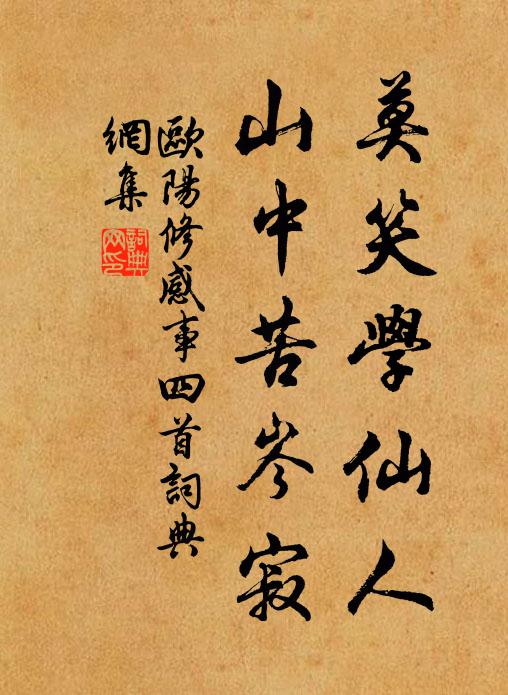 莫笑學仙人
山中苦岑寂
歐陽修感事四首詞典
網集
詞典
网印